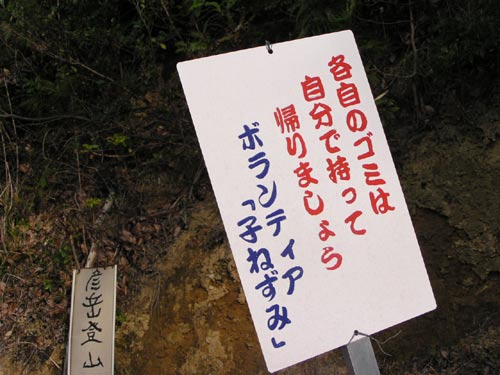 各自のゴミは
自分で持って
帰りましょら
ボランティア
「子ねずみ」
彦岳登山